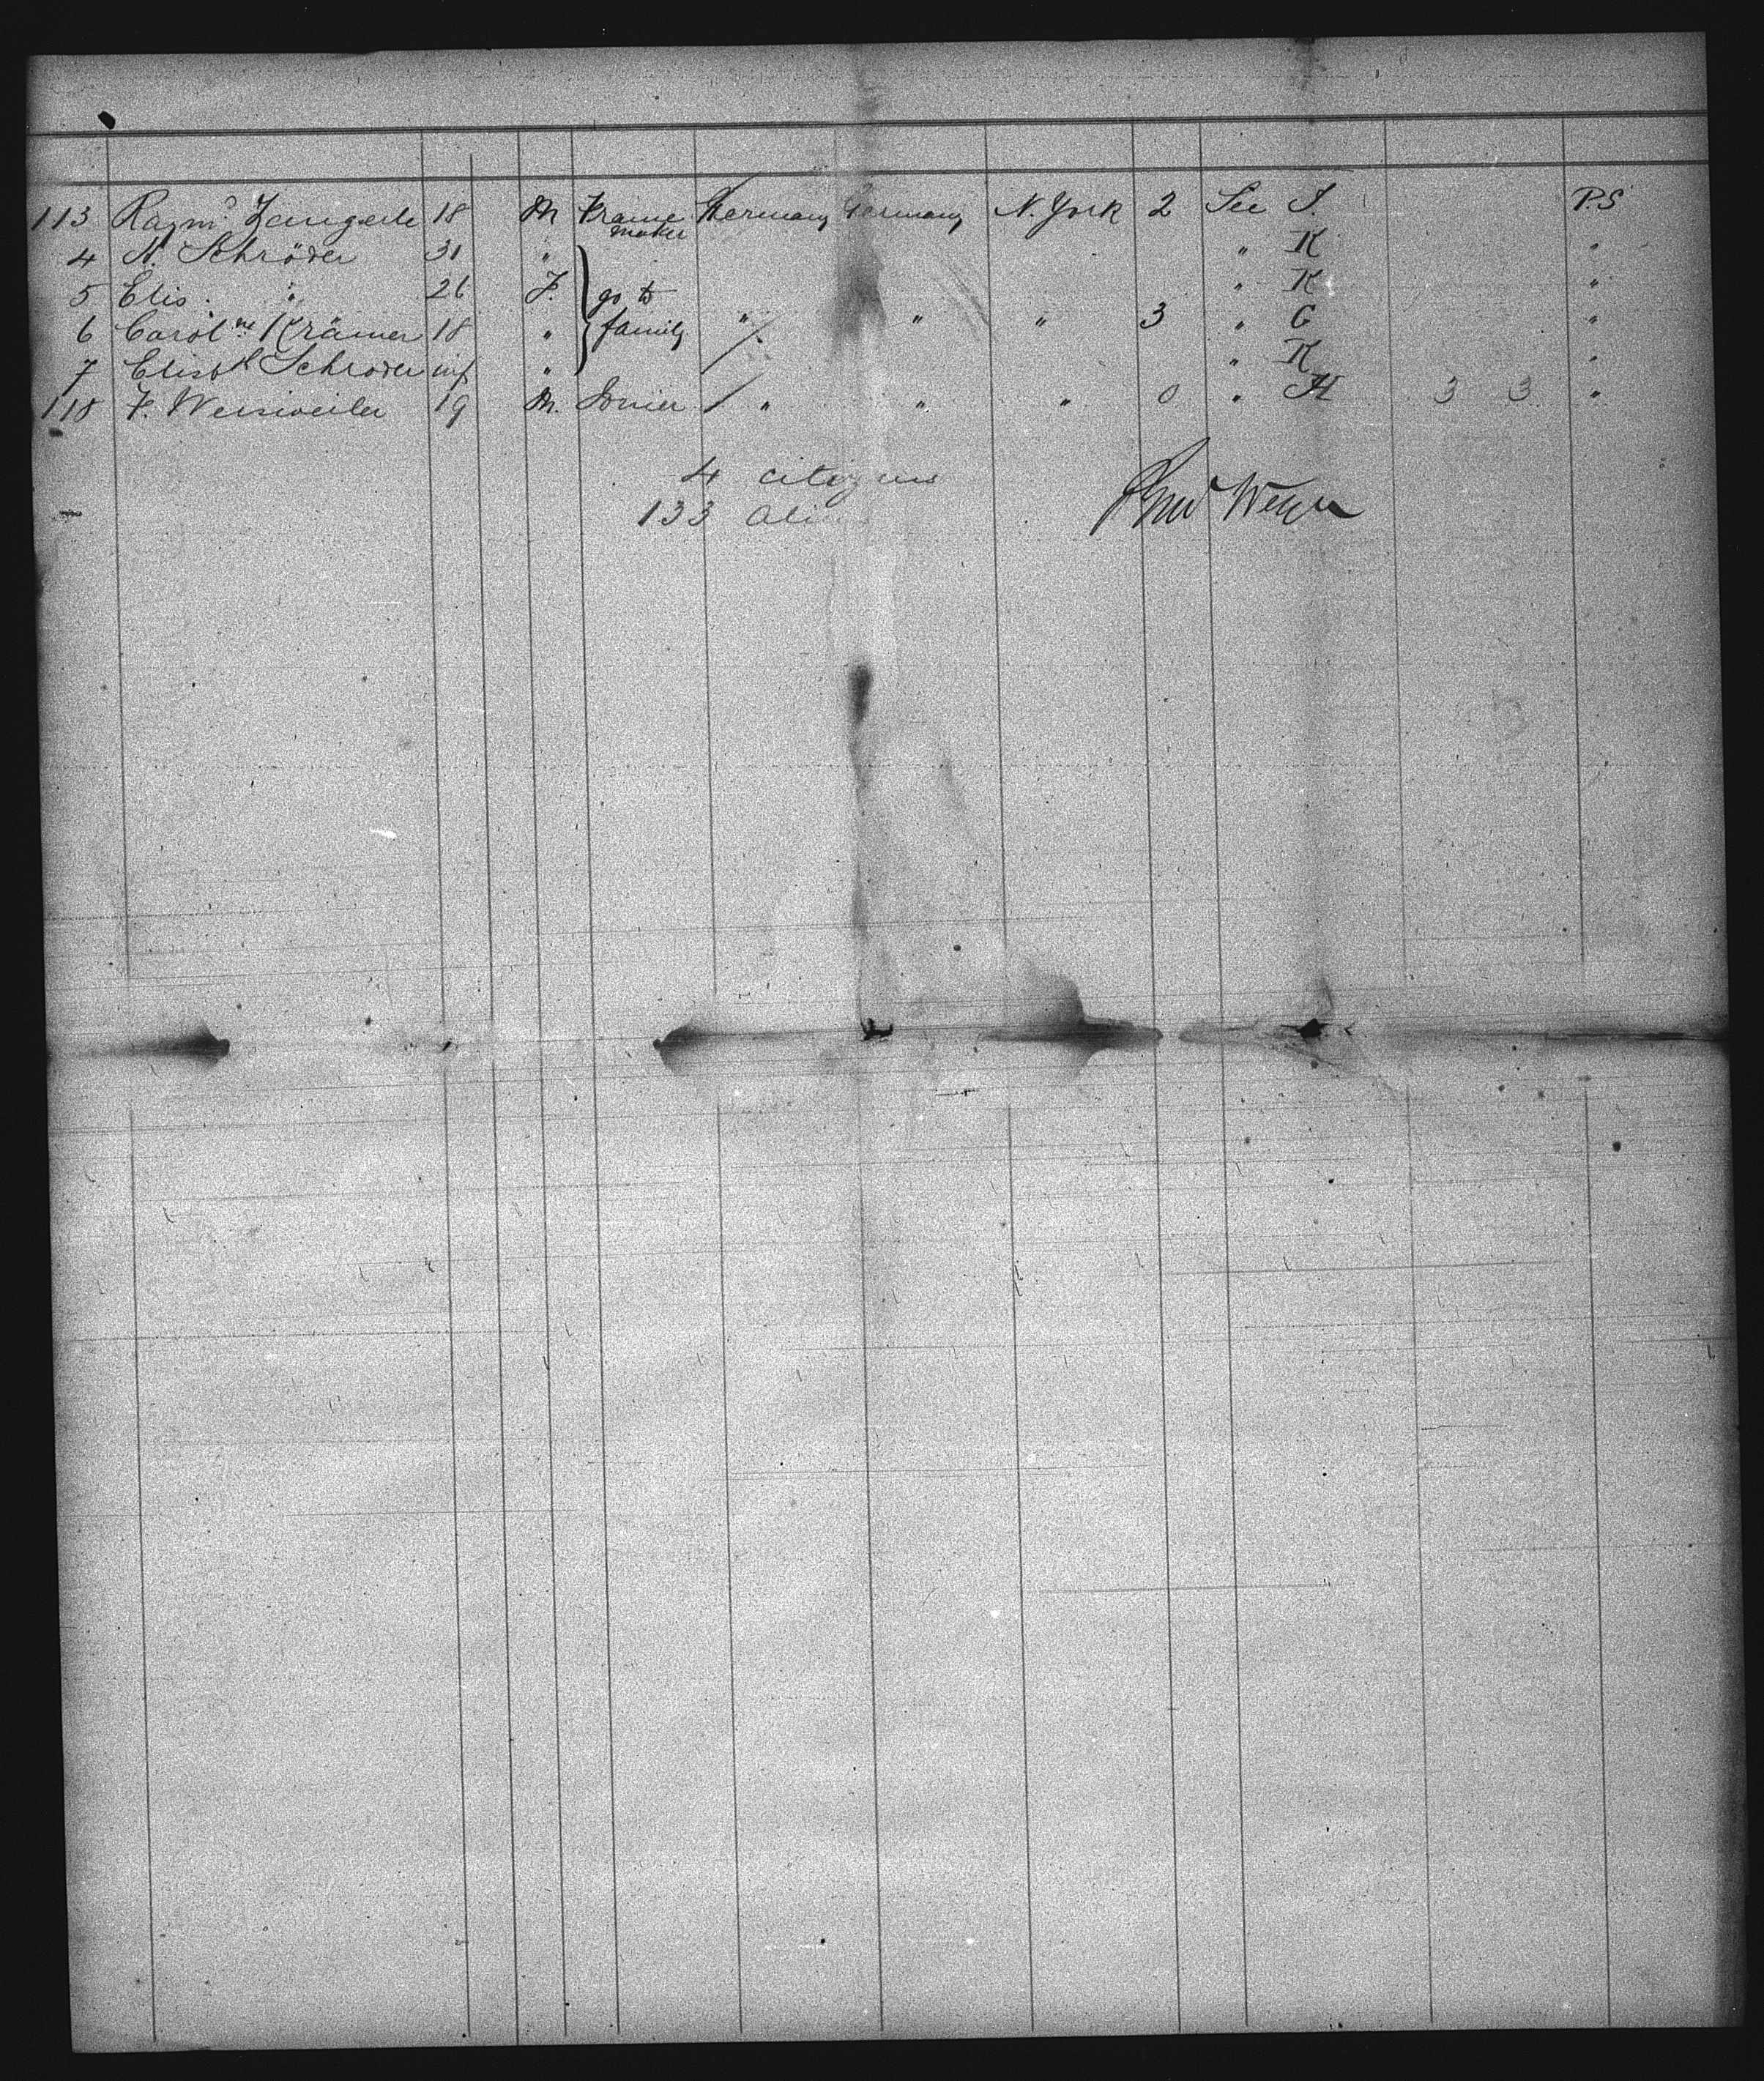 113 Raymd Zangerle 18 M Frame maker Germany Germany N. York 2 See I. P.S
4 N. Schröder 31 " " K "
5 Elis. " 26 F. go to " K "
6 Carolne Krämer 18 " family " " " 3 " G "
7 Elisbth Schroder inf " " K "
118 F. Weisweiler 19 M. " " " 0 " H 3 3 "
4 citizens
133 Aliens